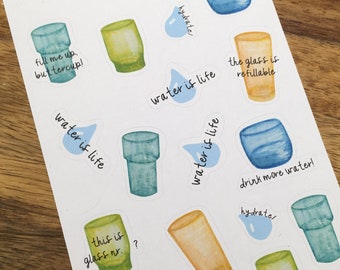 hydrate!
fill me up,
buttercup!
the glass is
refillable
water is life
water is life
water is life
drink more water!
hydrate!
this is
glass nr. ?